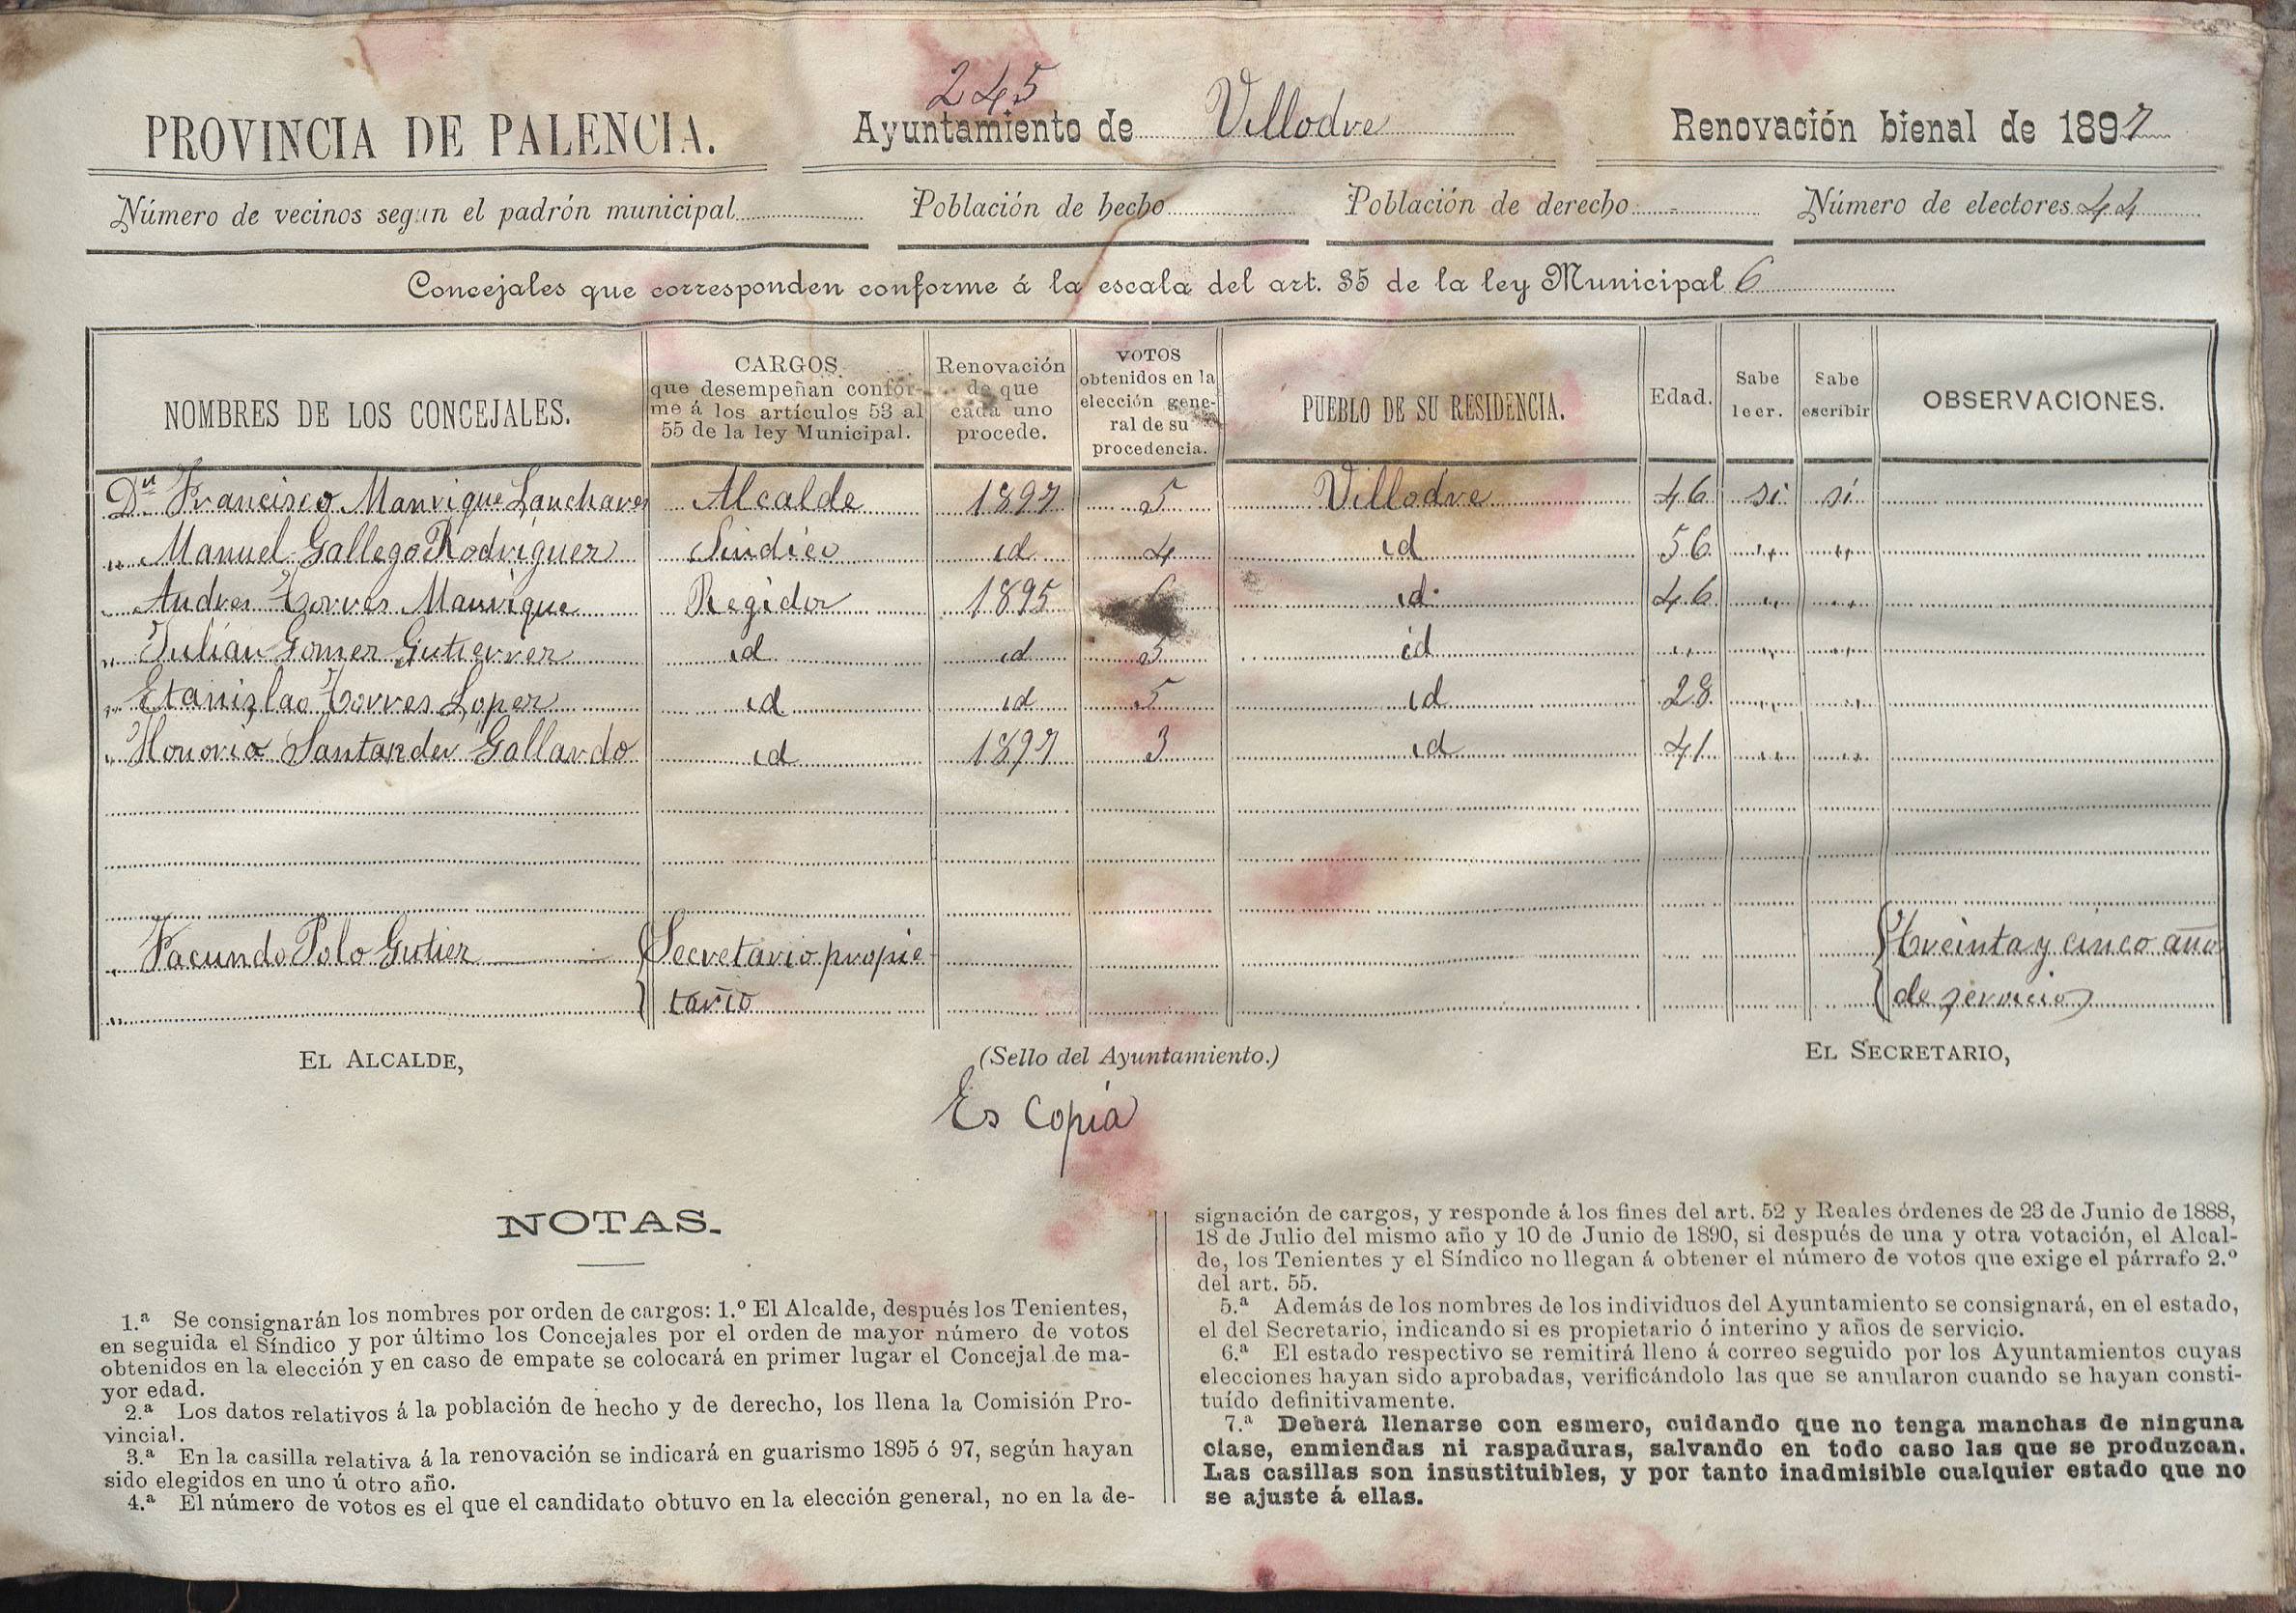 245
PROVINCIA DE PALENCIA. Ayuntamiento de Villodre Renovación bienal de 1897
Número de vecinos segun el padrón municipal Población de hecho Población de derecho Número de electores 44
Concejales que corresponden conforme á la escala del art. 35 de la ley Municipal 6
NOMBRES DE LOS CONCEJALES.
CARGOS
que desempeñan confor-
me á los artículos 53 al
55 de la ley Municipal.
Renovación
de que
cada uno
procede.
VOTOS
obtenidos en la
elección gene-
ral de su
procedencia.
PUEBLO DE SU RESIDENCIA.
Edad.
Sabe
leer.
Sabe
escribir
OBSERVACIONES.
Dn Francisco Manrique Lanchares Alcalde 1897 5 Villodre 46 si si
" Manuel Gallego Rodriguez Sindico id 4 id 56 " "
" Andres Torres Manrique Regidor 1895 id. 46 " "
" Julián Gomez Gutierrez id id 5 id " " "
" Etanizlao Torres Lopez id id 5 id 28 " "
" Honorio Santander Gallardo id 1897 3 id 41 " "
" Facundo Polo Gutier Secretario propie Treinta y cinco año
" tario de servicio
EL ALCALDE, (Sello del Ayuntamiento.) EL SECRETARIO,
Es Copia
NOTAS.
1.ª Se consignarán los nombres por orden de cargos: 1.º El Alcalde, después los Tenientes,
en seguida el Síndico y por último los Concejales por el orden de mayor número de votos
obtenidos en la elección y en caso de empate se colocará en primer lugar el Concejal de ma-
yor edad.
2.ª Los datos relativos á la población de hecho y de derecho, los llena la Comisión Pro-
vincial.
3.ª En la casilla relativa á la renovación se indicará en guarismo 1895 ó 97, según hayan
sido elegidos en uno ú otro año.
4.ª El número de votos es el que el candidato obtuvo en la elección general, no en la de-
signación de cargos, y responde á los fines del art. 52 y Reales órdenes de 23 de Junio de 1888,
18 de Julio del mismo año y 10 de Junio de 1890, si después de una y otra votación, el Alcal-
de, los Tenientes y el Síndico no llegan á obtener el número de votos que exige el párrafo 2.º
del art. 55.
5.ª Además de los nombres de los individuos del Ayuntamiento se consignará, en el estado,
el del Secretario, indicando si es propietario ó interino y años de servicio.
6.ª El estado respectivo se remitirá lleno á correo seguido por los Ayuntamientos cuyas
elecciones hayan sido aprobadas, verificándolo las que se anularon cuando se hayan consti-
tuído definitivamente.
7.ª Deberá llenarse con esmero, cuidando que no tenga manchas de ninguna
clase, enmiendas ni raspaduras, salvando en todo caso las que se produzcan.
Las casillas son insustituibles, y por tanto inadmisible cualquier estado que no
se ajuste á ellas.